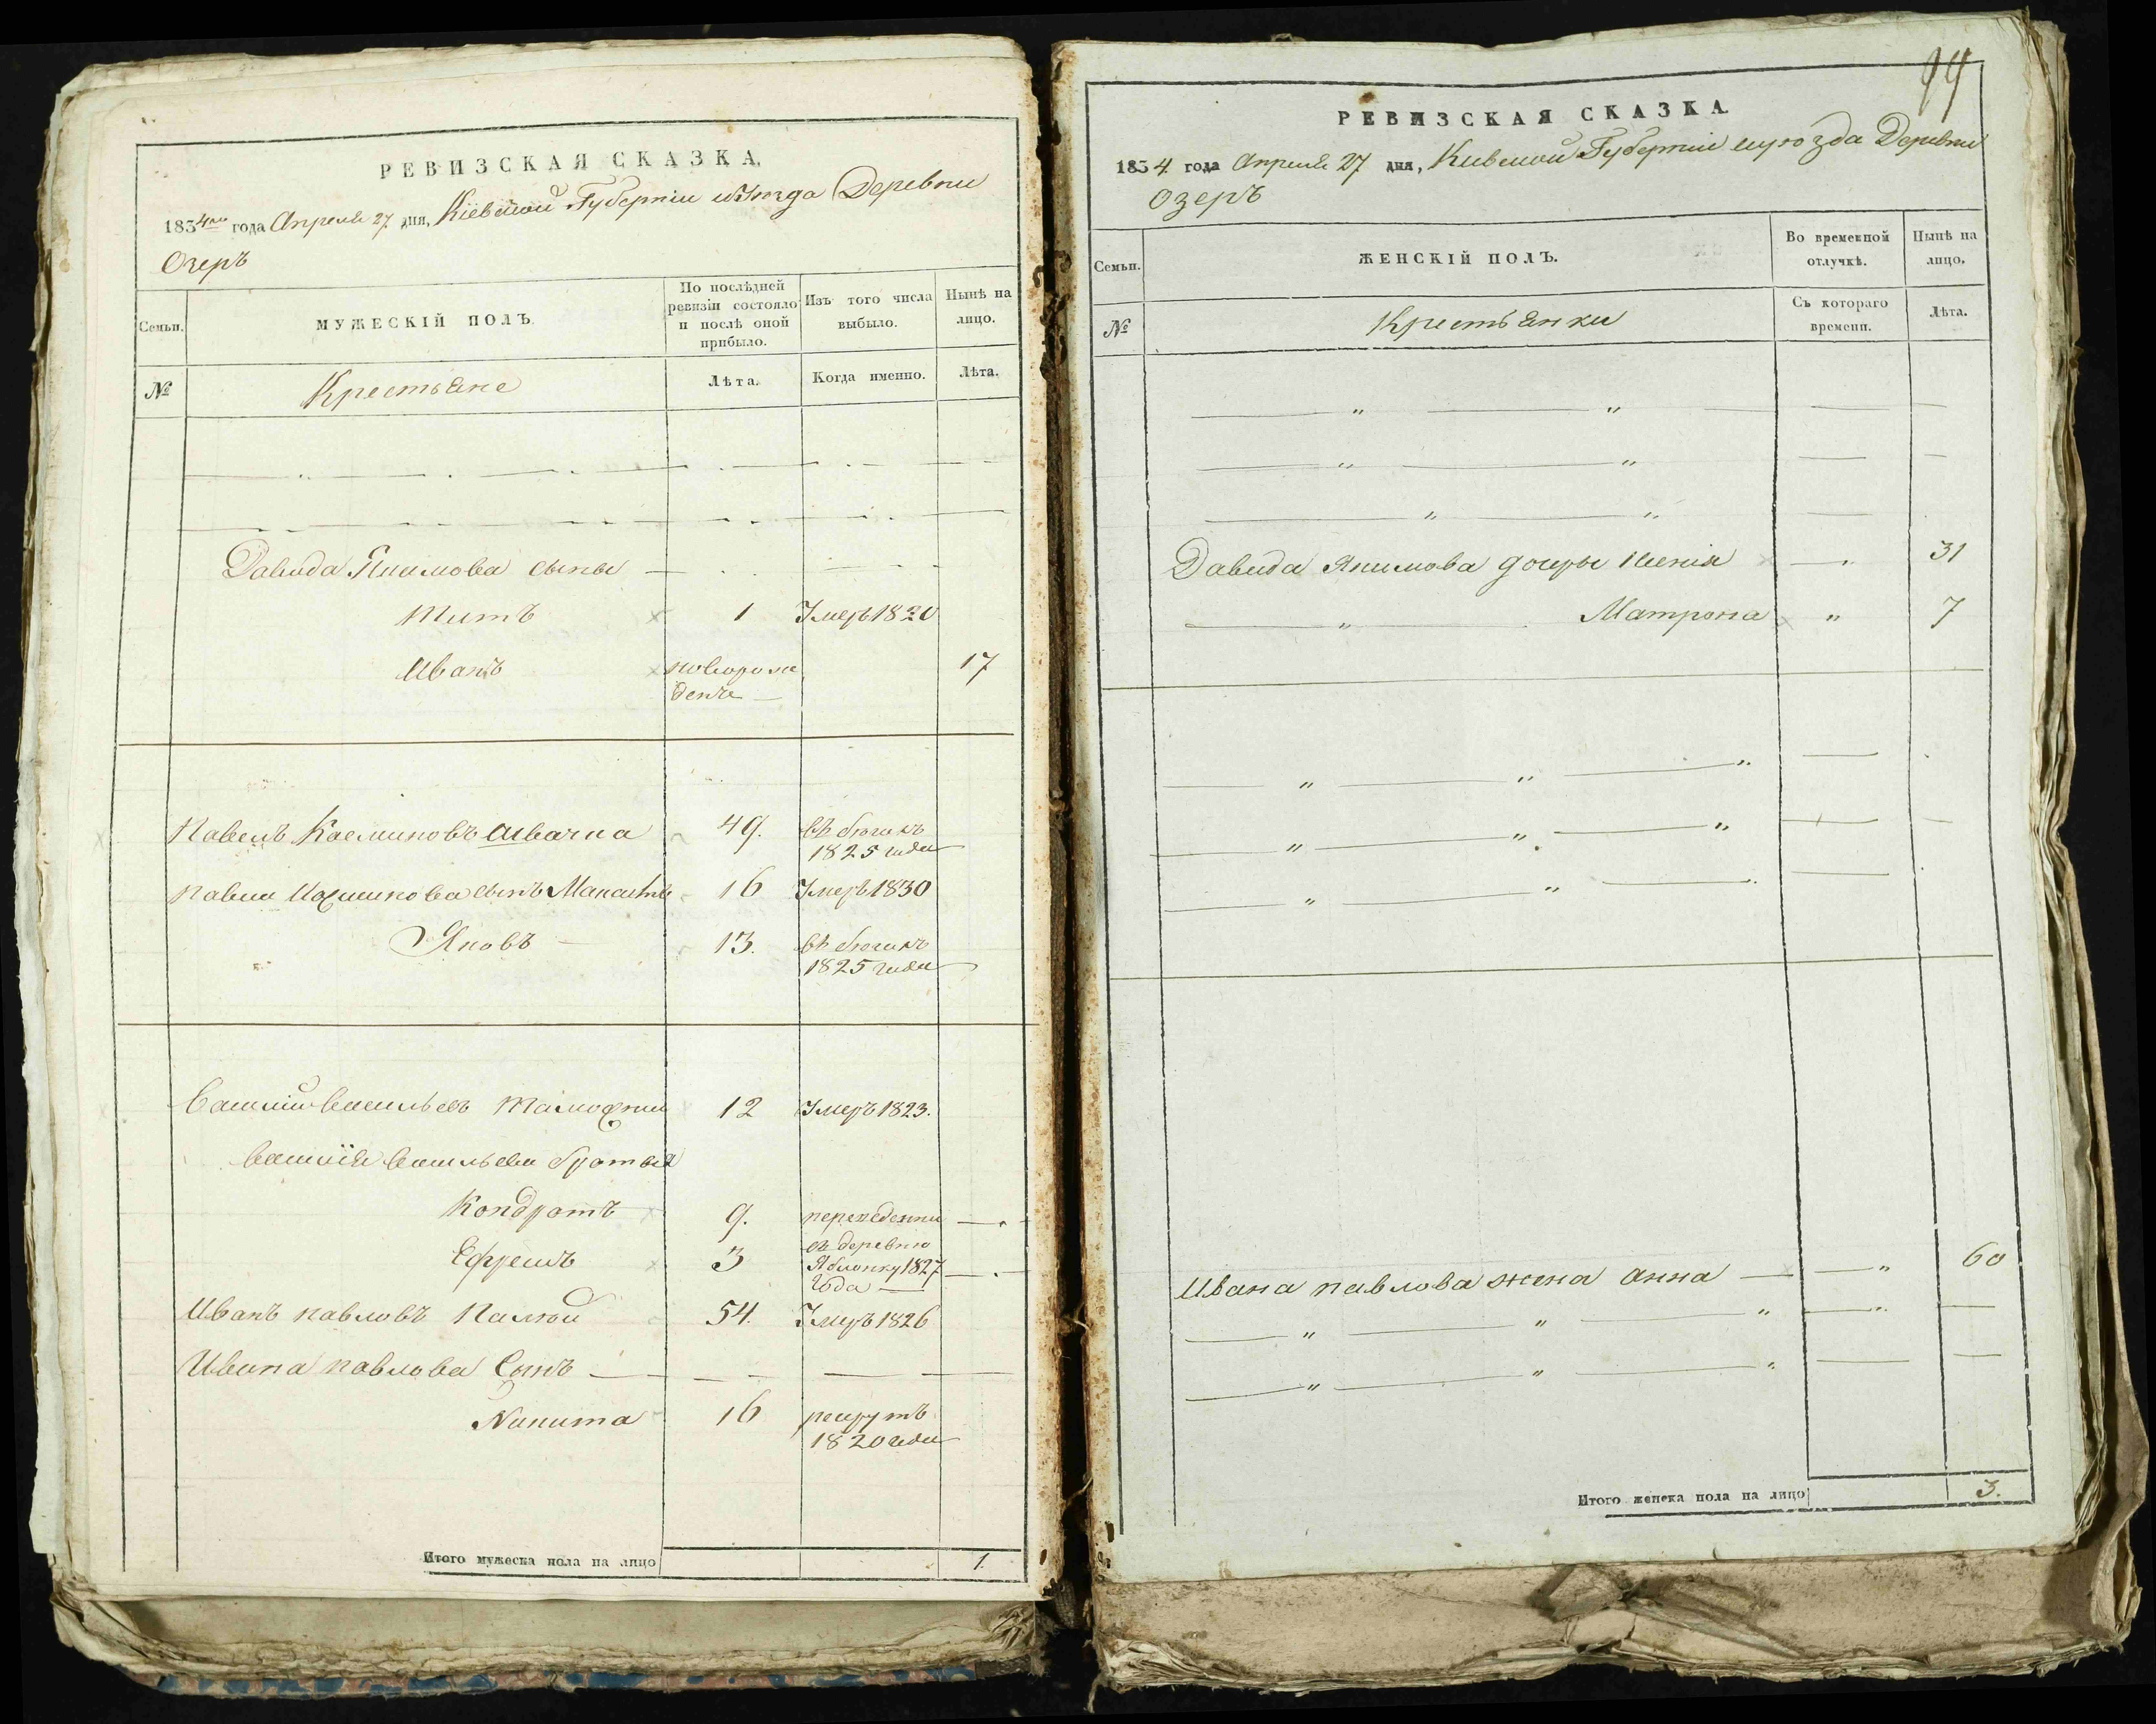 РЕВИЗСКАЯ СКАЗКА,
1834го года Апреля 27 дня, Кіевской Губерніи и уѣзда Деревни
Озеръ
Семьи.
МУЖЕСКІЙ ПОЛЪ.
По послѣдней ревизіи состояло и послѣ оной прибыло.
Изъ того числа выбыло.
Нынѣ на лицо.
№
Крестьяне
Лѣта.
Когда именно.
Лѣта.
Давида Якимова сыны
Титъ 1 Умеръ 1820
Иванъ новорож 17
денъ
Павелъ Ивачка 49. въ бѣгахъ
1825 года
Павла сынъ 16 Умеръ 1830
Яковъ 13. въ бѣгахъ
1825 года
Василій Васильевъ 12 Умеръ 1823.
Василія Васильева братья
Кондратъ 9. переведены
въ деревню
Ефремъ 3 Яблонку 1827
года
Иванъ Павловъ Палѣй 54. Умеръ 1826
Ивана Павлова Сынъ
Никита 16 рекрутъ
1820 года
Итого мужеска пола на лицо 1.
РЕВИЗСКАЯ СКАЗКА.
1834 года Апреля 27 дня, Киевской Губерніи и уѣзда Деревни
Озеръ
Семьи.
ЖЕНСКІЙ ПОЛЪ.
Во временной отлучкѣ.
Нынѣ на лицо.
№
Крестьянки
Съ котораго времени.
Лѣта.
Давида Якимова дочери Ксенія " 31
" Матрона " 7
Ивана Павлова жена Анна " 60
Итого женска пола на лицо 3.